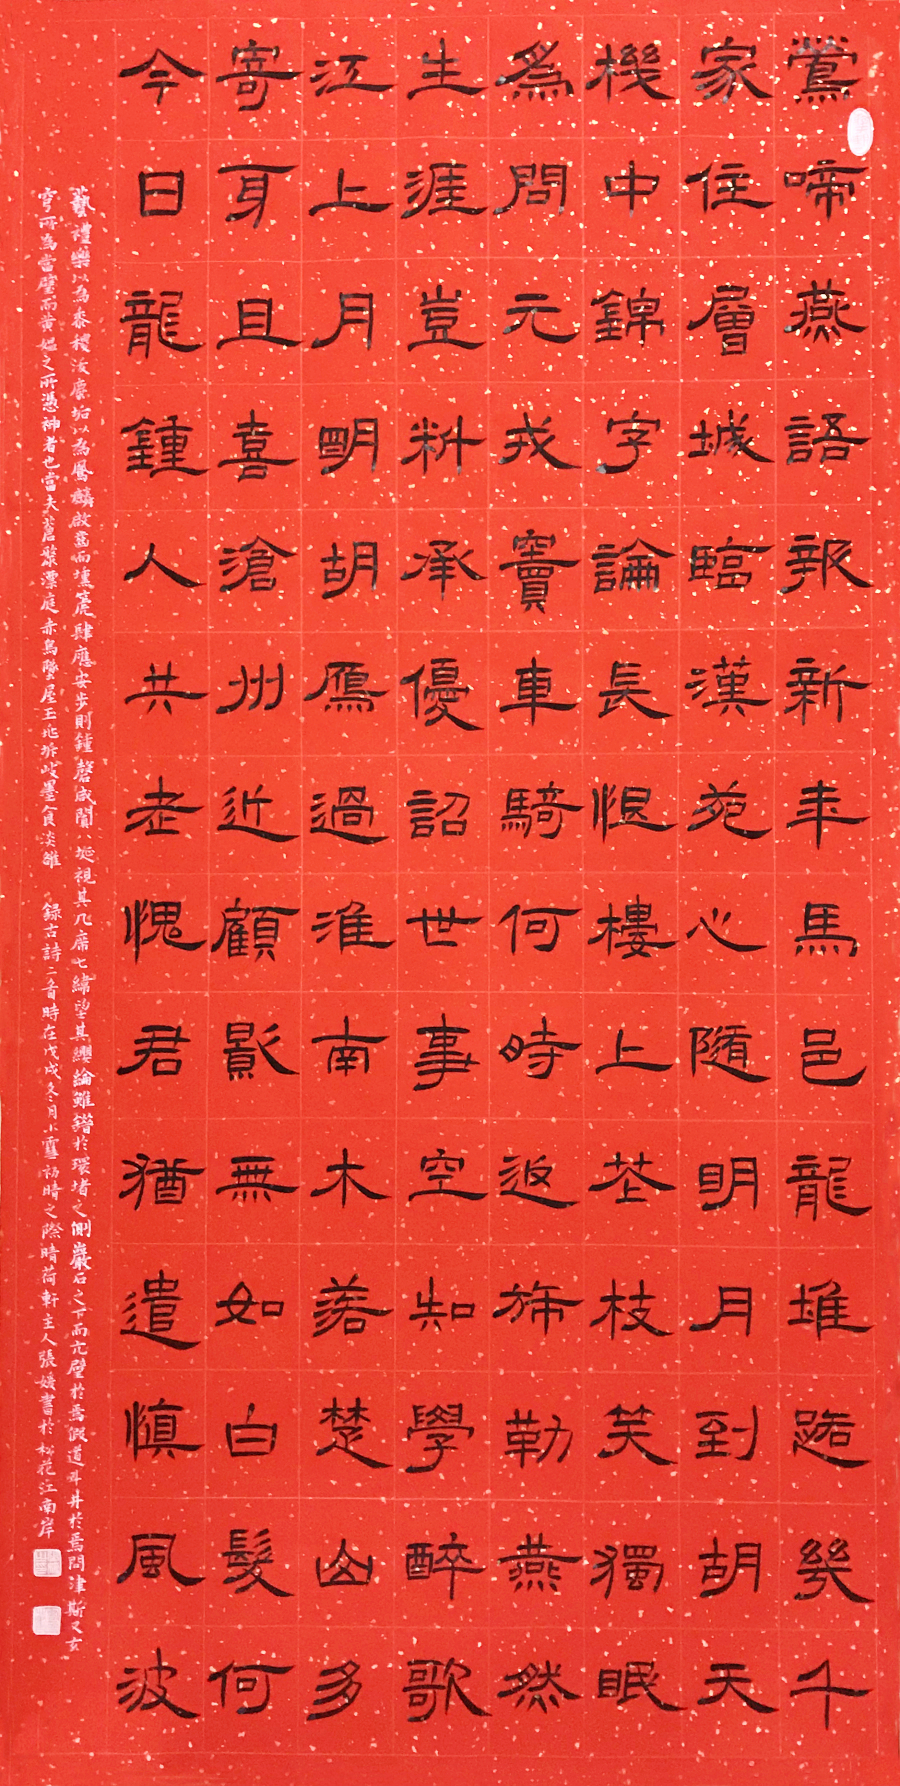 鶯啼燕語報新年馬邑龍堆路幾千
家住層城臨漢苑心隨明月到胡天
機中錦字論長恨樓上花枝笑獨眠
爲問元戎竇車騎何時返旆勒燕然
生涯豈料承優詔世事空知學醉歌
江上月明胡鴈過淮南木落楚山多
寄身且喜滄州近顧影無如白髮何
今日龍鍾人共老愧君猶遣慎風波
藝禮樂以為黍稷 塵垢以為 而壎篪肆應安步則鍾磬咸聞 視其几席七緯望其纓綸雖錯於環堵之側巖石之下而亢壁於焉假道斗井於焉問津斯又玄
穹所為當璧而黃媼之所憑神者也當夫 漂庭赤烏 屋王 岐墨食 雒 錄古詩二首時在戊戌冬月小雪初晴之際晴荷軒主人張媛書於松花江南岸